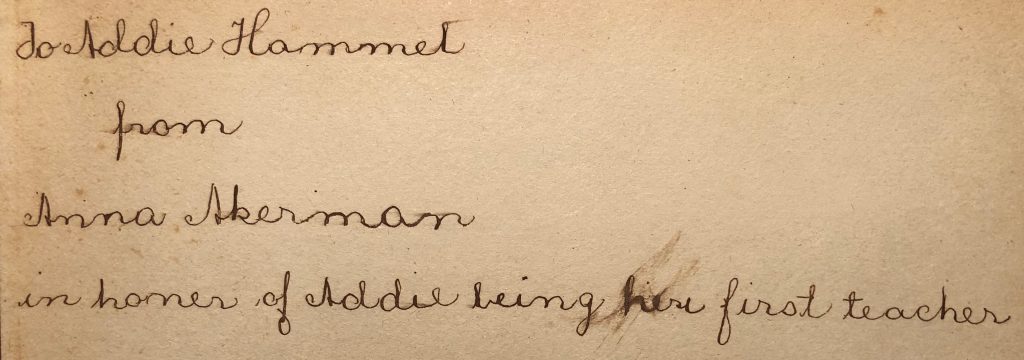 To Addie Hammet
from
Anna Akerman
in honer of Addie being her first teacher